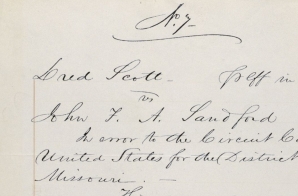 No. 7
Dred Scott pltff in
vs
John F. A. Sandford
In error to the Circuit C
United States for the District
Missouri